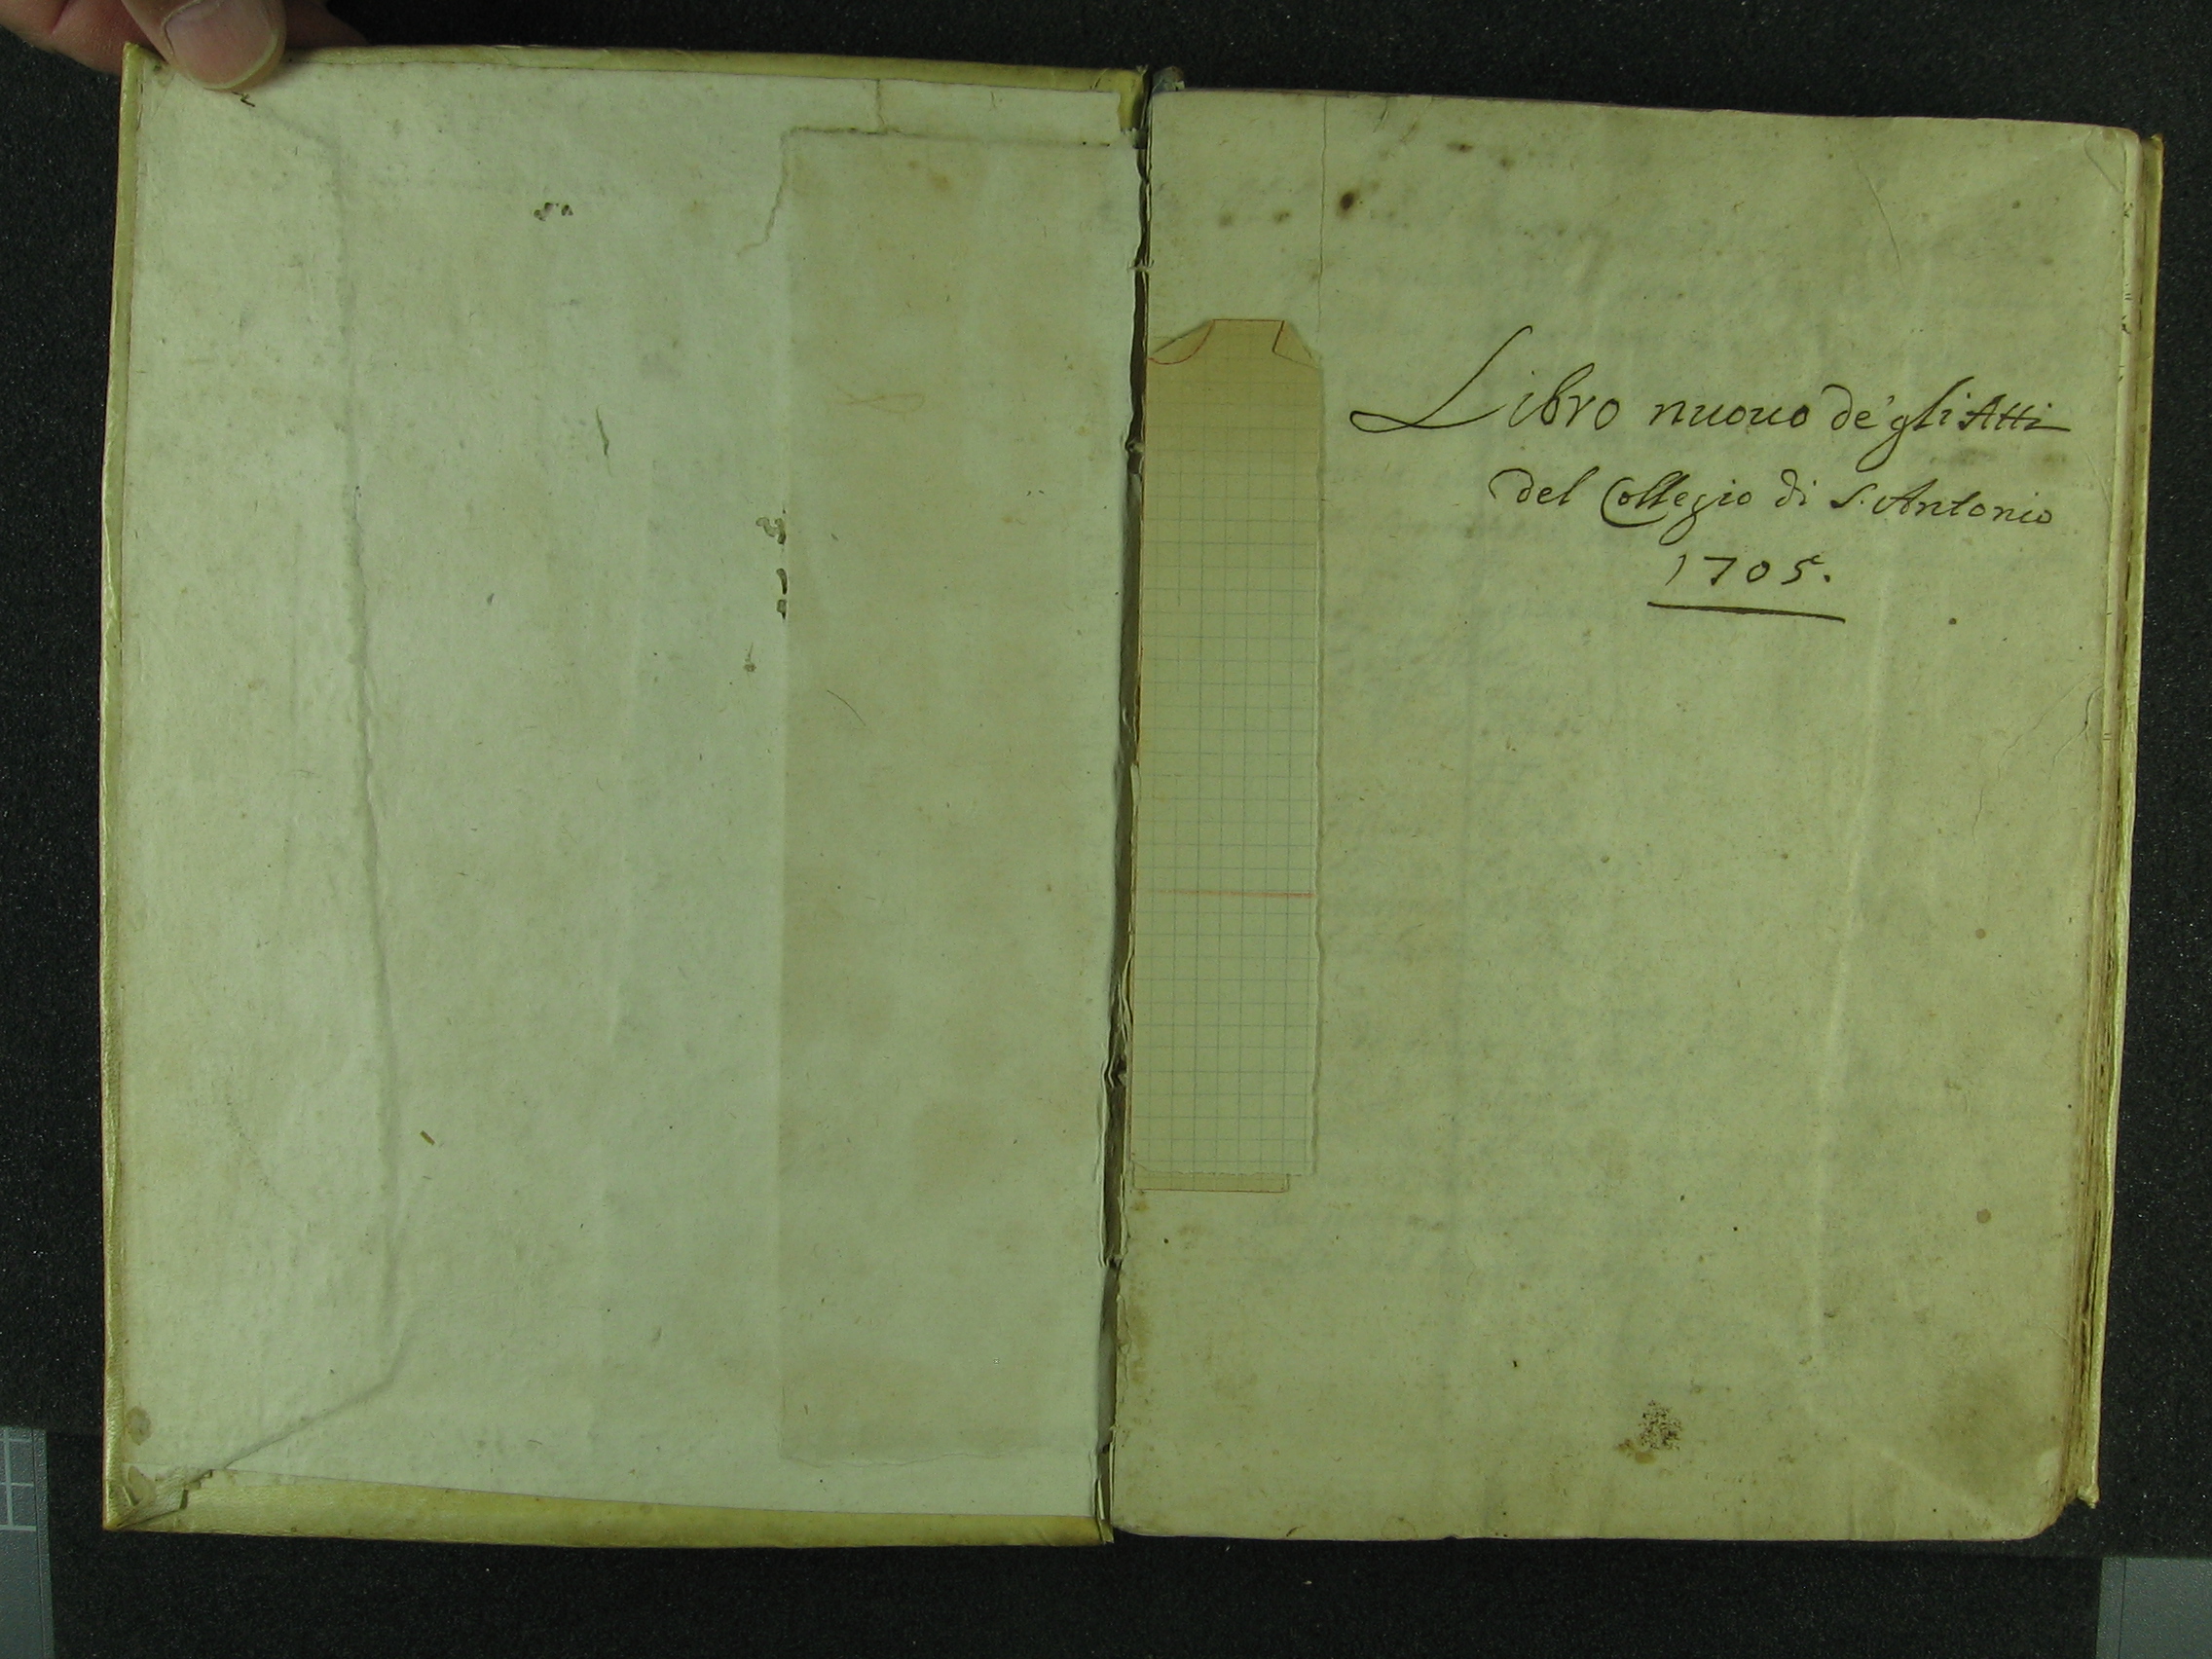 Libro nuouo de' gli Atti
del Collegio di S. Antonio
1705.